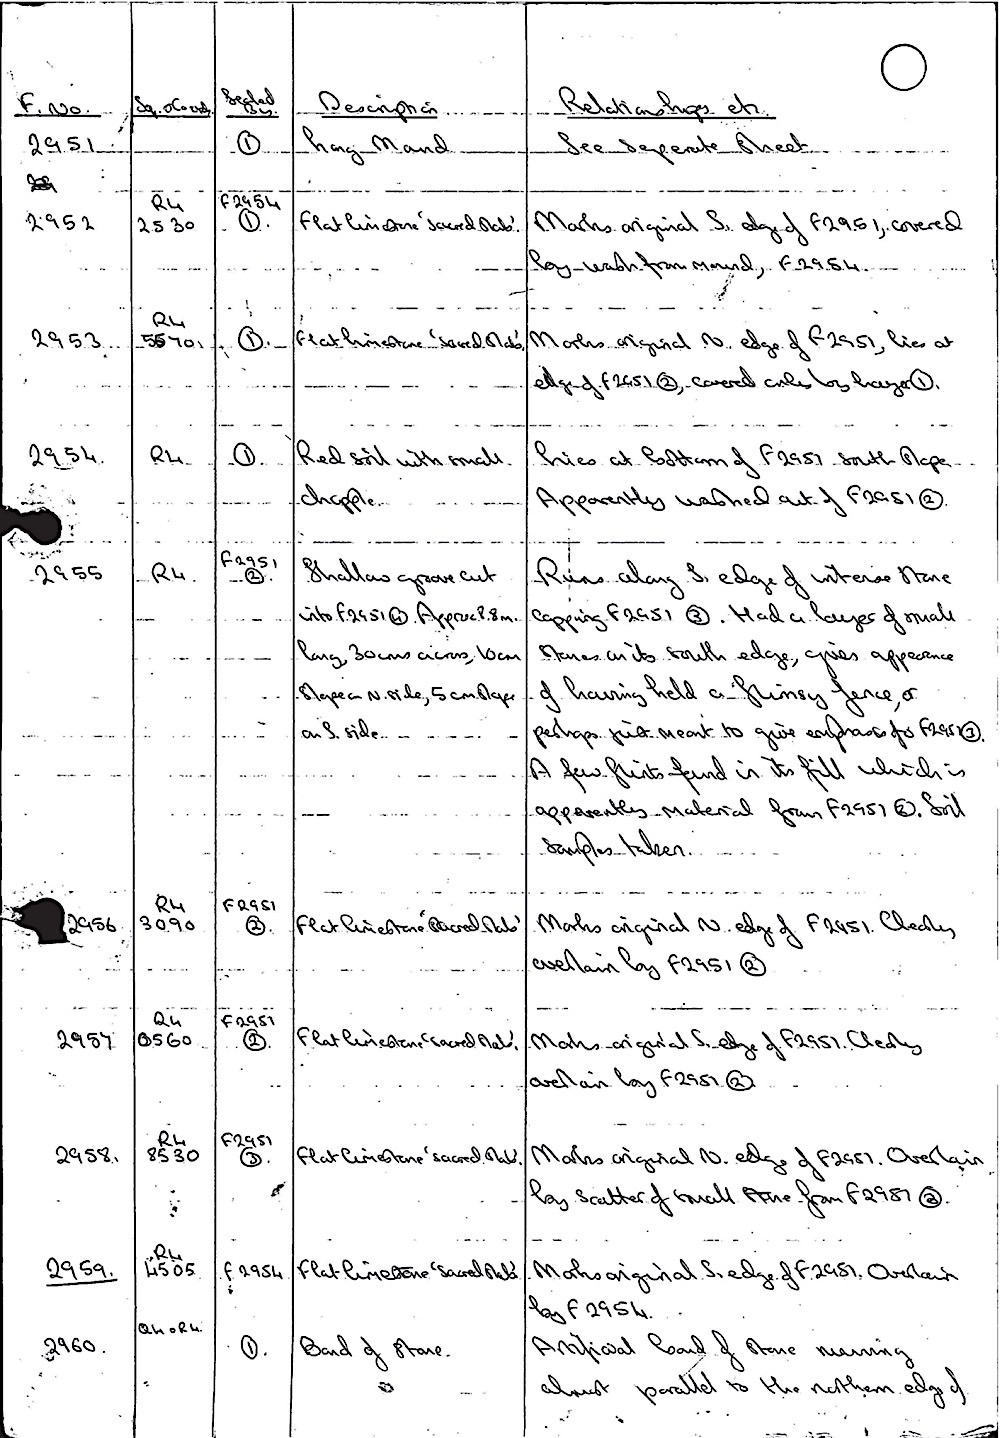 F. No. Sq. & Coord Sealed By. Description Relationships etc.
2951 ① Long Mound See Seperate Sheet
R4 F2954
2952 2530 ①. Flat limestone 'sacred slab'. Marks original S. edge of F2951, covered
by wash from mound, F2954.
R4
2953 5570 ①. Flat limestone 'sacred slab'. Marks original N. edge of F2951, lies at
edge of F2951 ②, covered only by layer ①.
2954. R4 ①. Red soil with small Lies at bottom of F2951 south slope
chapple. Apparently washed out of F2951 ②.
F2951
2955 R4. ②. Shallow groove cut Runs along S. edge of intense stone
into F2951 ④. Approx 8.8m. capping F2951 ③. Had a layer of small
long, 30cms across, 10cm stones on its south edge, gives appearance
slope on N. side, 5cm slope of having held a flimsy fence, or
on S. side. perhaps just meant to give emphasis to F2951 ③.
A few flints found in its fill which is
apparently material from F2951 ②. Soil
samples taken.
R4 F2951
2956 3090 ②. Flat limestone 'sacred slab' Marks original N. edge of F2951. Clearly
overlain by F2951 ②
R4 F2951
2957 0560 ②. Flat limestone 'sacred slab'. Marks original S. edge of F2951. Clearly
overlain by F2951 ②
R4 F2951
2958. 8530 ③. Flat limestone 'sacred slab'. Marks original N. edge of F2951. Overlain
by scatter of small stone from F2951 ③.
R4
2959. 4505 F2954 Flat limestone 'sacred slab'. Marks original S. edge of F2951. Overlain
by F2954.
Q4 & R4.
2960. ①. Band of stone. Artificial band of stone running
almost parallel to the northern edge of